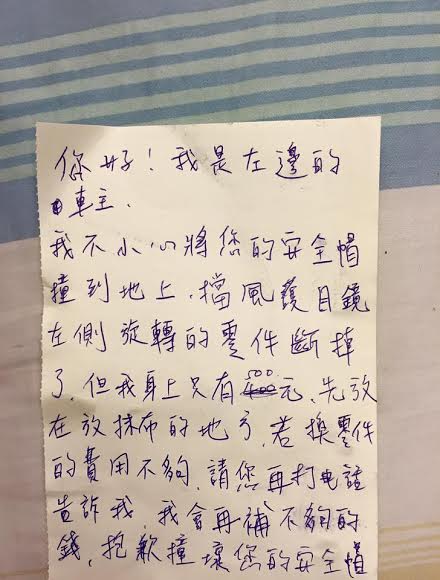 你好！我是左邊的
車主.
我不小心將您的安全帽
撞到地上.擋風護目鏡
左側旋轉的零件斷掉
了.但我身上只有500元、先放
在放抹布的地方,若換零件
的費用不夠,請您再打电話
告訴我.我會再補不夠的
錢,抱歉撞壞您的安全帽